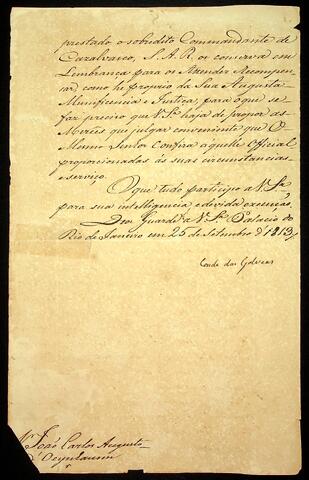 prestado o sobredito Commandante de
Cazalvasco, S. A. R. os conserva em
Lembrança para os Attender e Recompen-
sar como he proprio da Sua Augusta
Munificencia e Justiça; para o que se
faz preciso que V. Sa. haja de propor as
Mercês que julgar conveniente que O
Mesmo Senhor Confira aquelle Official
proporcionadas ás suas circunstancias
e serviço.
O que tudo participo a V. Sa.
para sua intelligencia, e devida execução.
Deos Guarde a V. Sa. Palacio do
Rio de Janeiro em 25 de Setembro d' 1813
Conde das Galveas
Sr. João Carlos Augusto
d' Oeynhausen